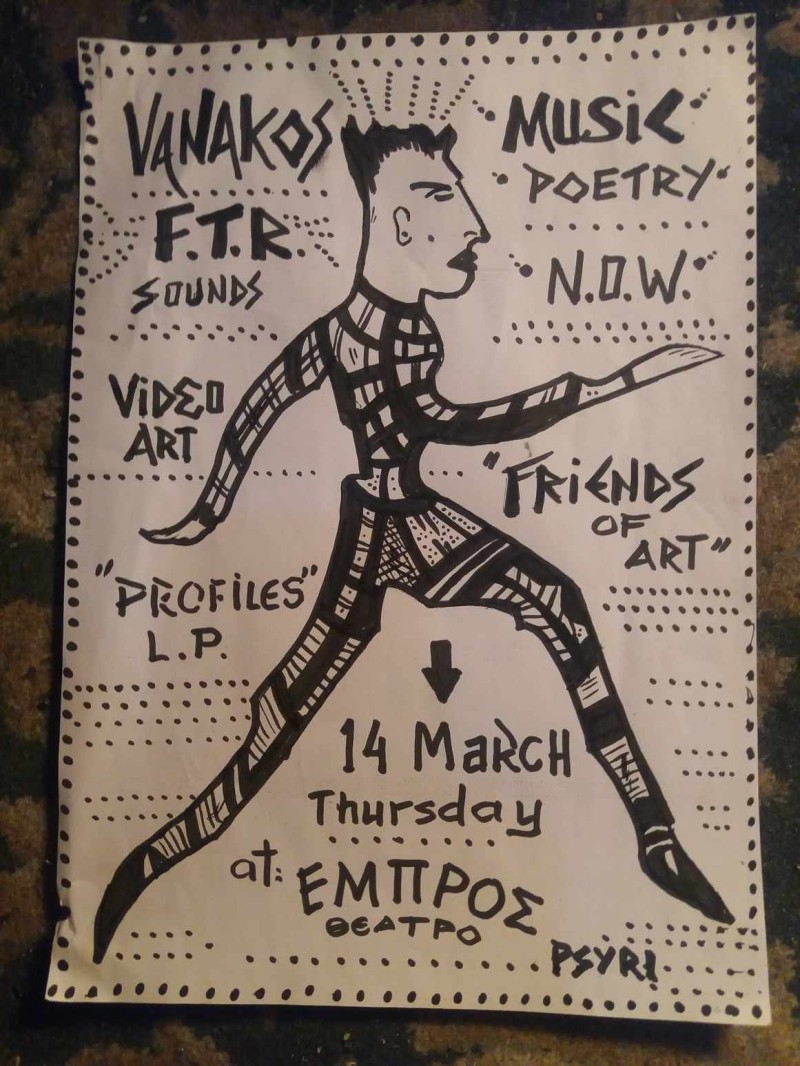 VANAKOS
F.T.R.
SOUNDS
MUSiC
POETRY
N.O.W.
ViDEO
ART
"FRiENDS
OF
ART"
"PROFiLES"
L.P.
14 MaRCH
Thursday
at:
ΕΜΠΡΟΣ
ΘΕΑΤΡΟ
PSYRI